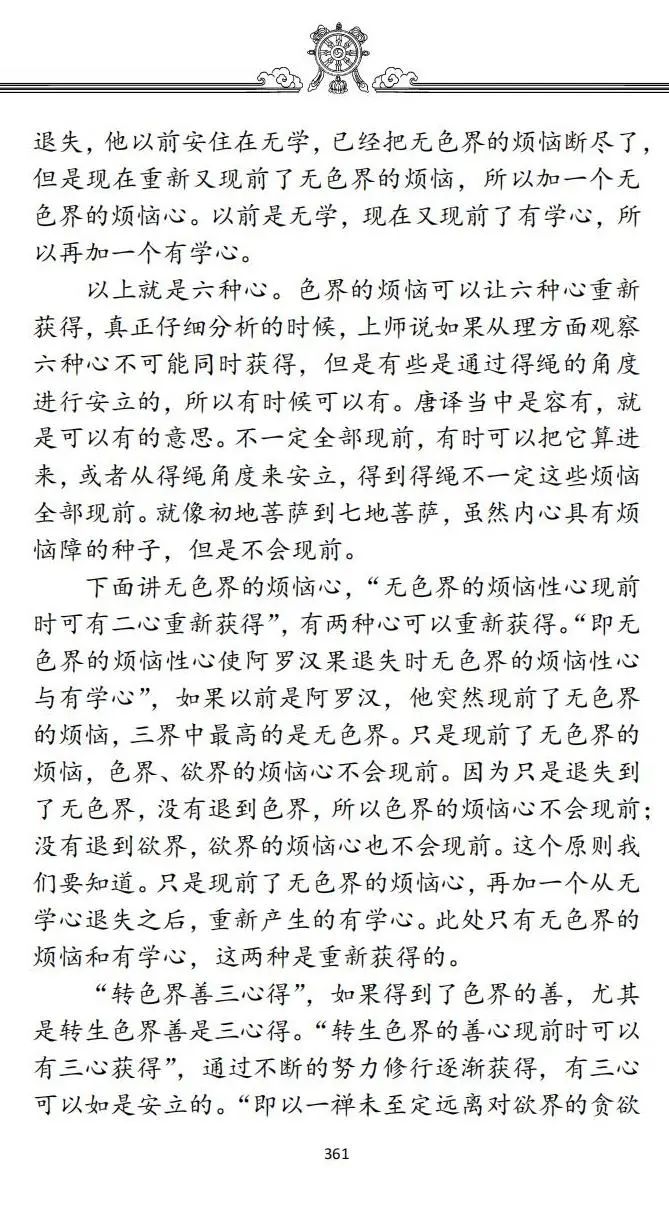 退失，他以前安住在无学，已经把无色界的烦恼断尽了，
但是现在重新又现前了无色界的烦恼，所以加一个无
色界的烦恼心。以前是无学，现在又现前了有学心，所
以再加一个有学心。
以上就是六种心。色界的烦恼可以让六种心重新
获得，真正仔细分析的时候，上师说如果从理方面观察
六种心不可能同时获得，但是有些是通过得绳的角度
进行安立的，所以有时候可以有。唐译当中是容有，就
是可以有的意思。不一定全部现前，有时可以把它算进
来，或者从得绳角度来安立，得到得绳不一定这些烦恼
全部现前。就像初地菩萨到七地菩萨，虽然内心具有烦
恼障的种子，但是不会现前。
下面讲无色界的烦恼心，“无色界的烦恼性心现前
时可有二心重新获得”，有两种心可以重新获得。“即无
色界的烦恼性心使阿罗汉果退失时无色界的烦恼性心
与有学心”，如果以前是阿罗汉，他突然现前了无色界
的烦恼，三界中最高的是无色界。只是现前了无色界的
烦恼，色界、欲界的烦恼心不会现前。因为只是退失到
了无色界，没有退到色界，所以色界的烦恼心不会现前；
没有退到欲界，欲界的烦恼心也不会现前。这个原则我
们要知道。只是现前了无色界的烦恼心，再加一个从无
学心退失之后，重新产生的有学心。此处只有无色界的
烦恼和有学心，这两种是重新获得的。
“转色界善三心得”，如果得到了色界的善，尤其
是转生色界善是三心得。“转生色界的善心现前时可以
有三心获得”，通过不断的努力修行逐渐获得，有三心
可以如是安立的。“即以一禅未至定远离对欲界的贪欲
361